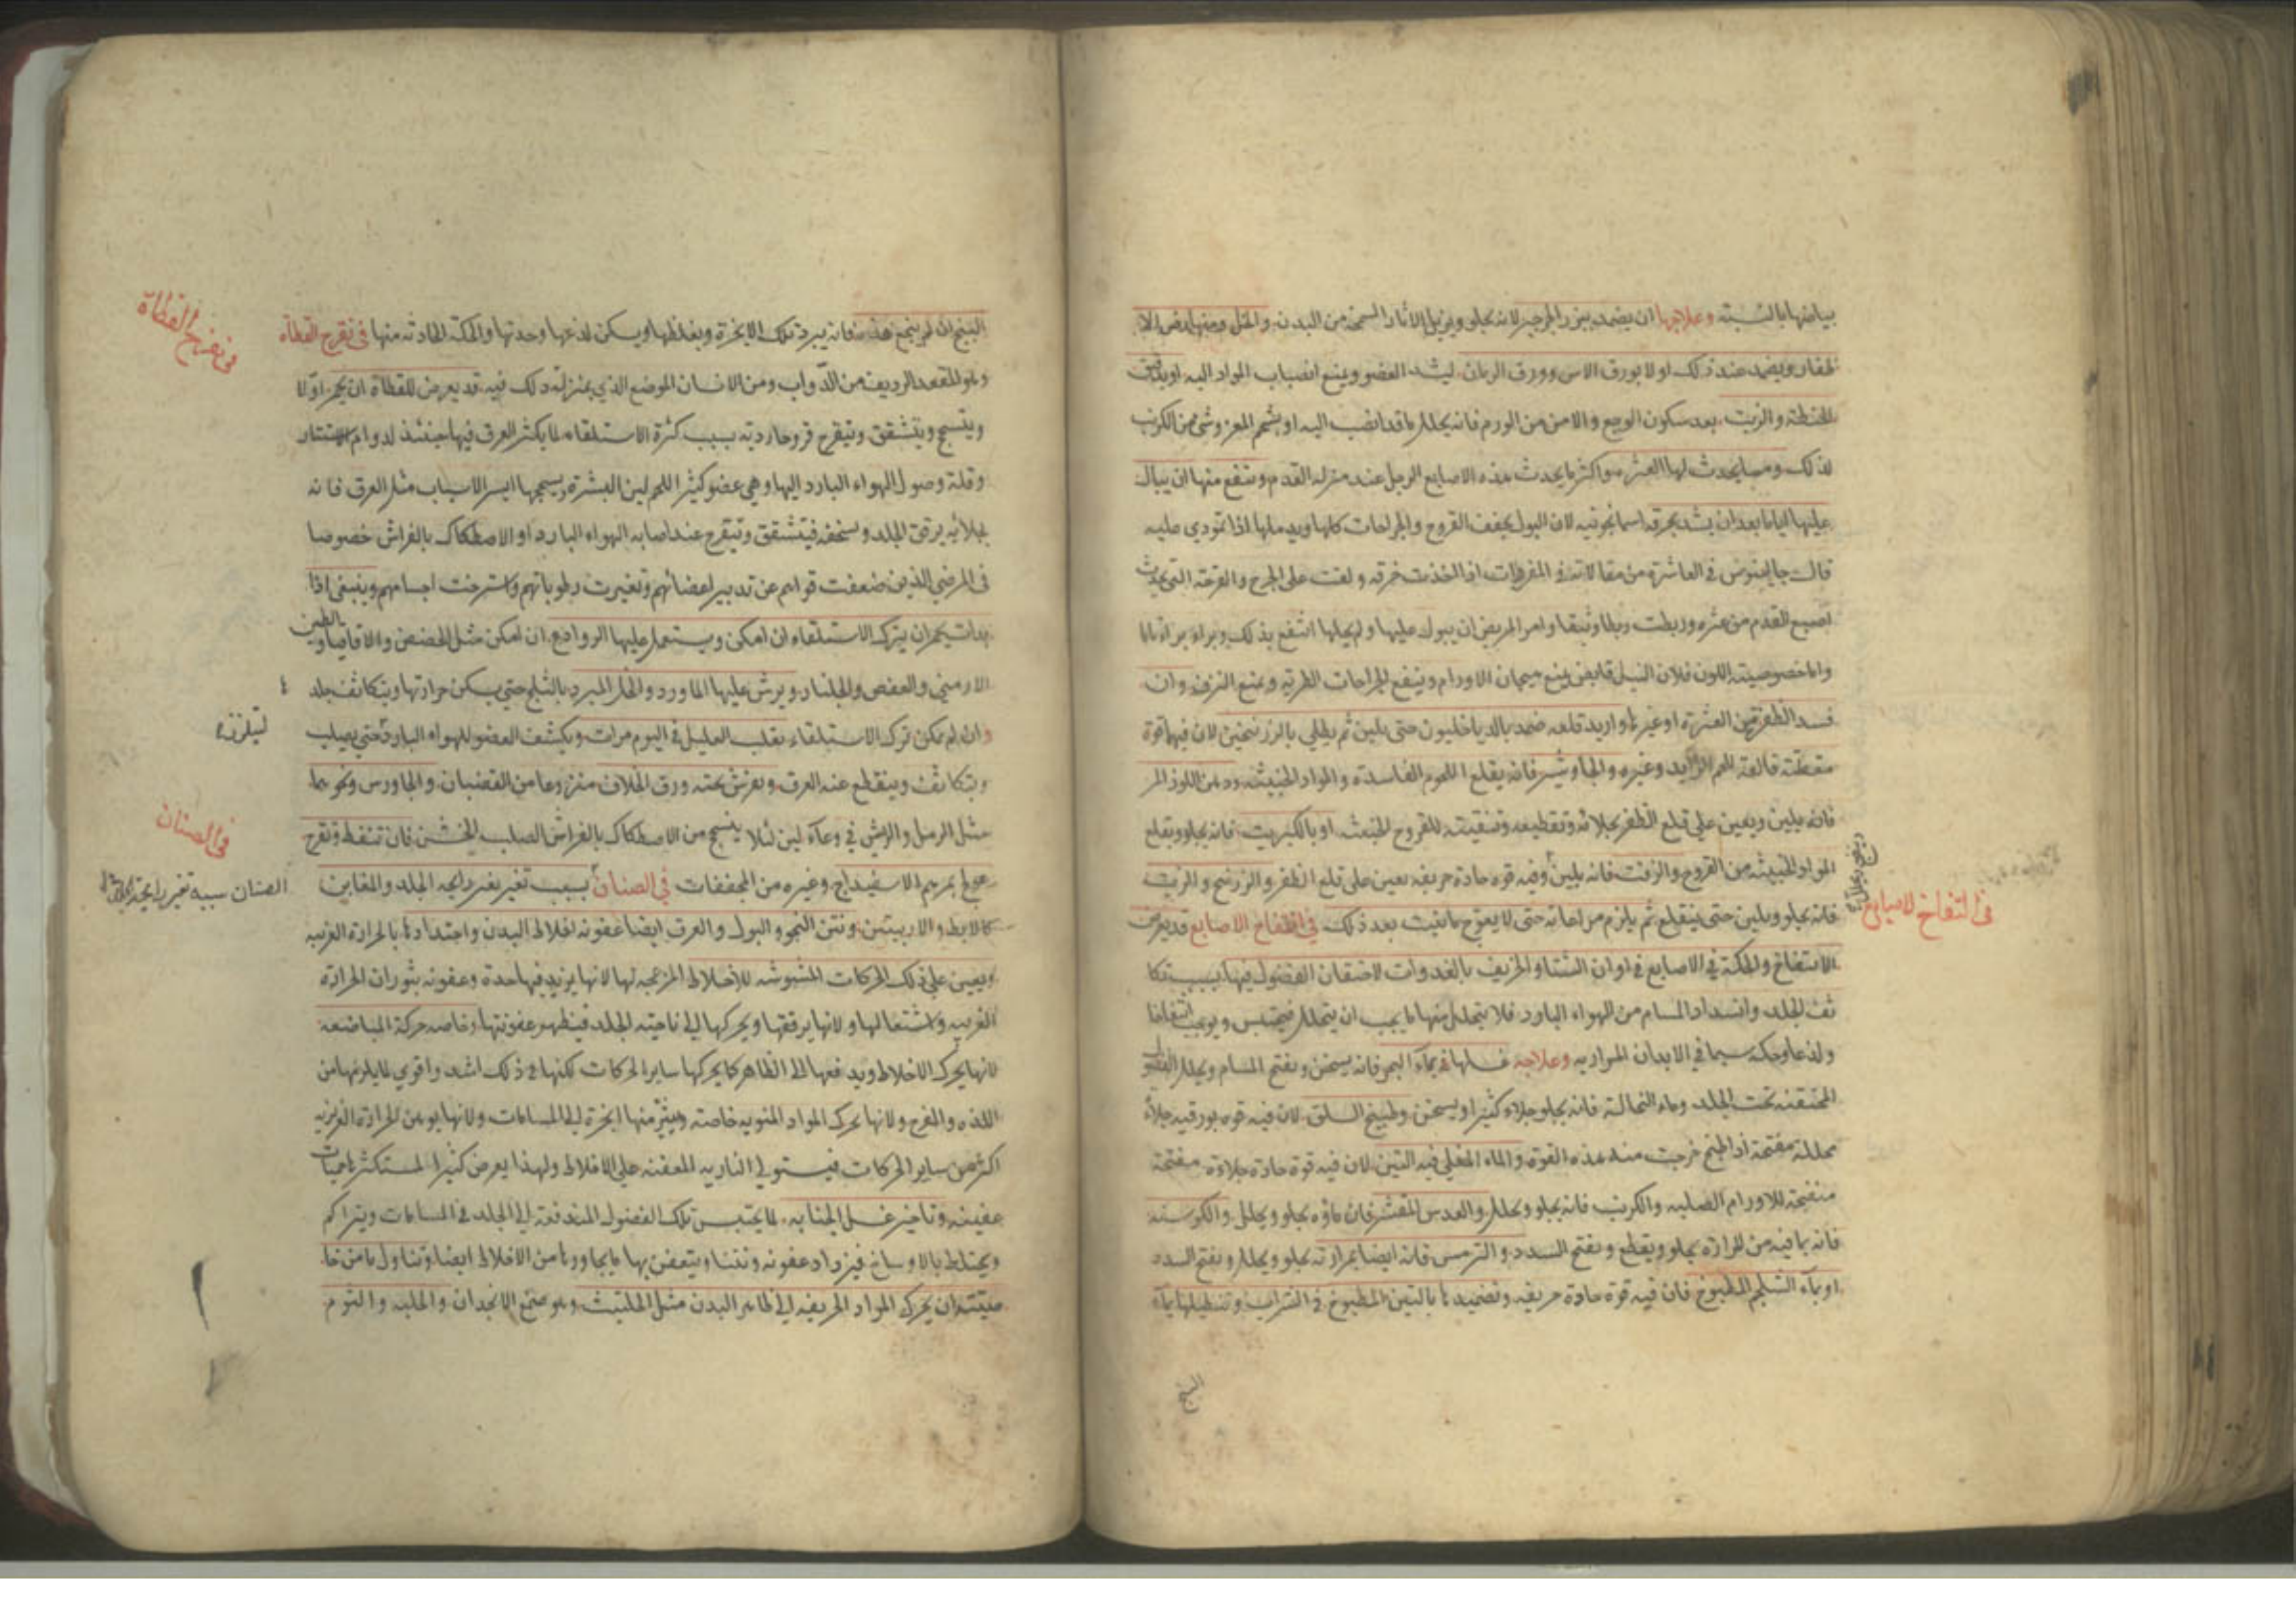 بياضها بالنسبة وعلاجها ان يضمد ببزر الجرجير لانه يجلو ويزيل الاثار السمجة من البدن والخل ومنها رض الا
ظفار ويضمد عند ذلك اولا بورق الاس وورق الرمان ليشد العضو ويمنع انصباب المواد اليه او بدقيق
الحنطة والزيت بعد سكون الوجع والامن من الورم فانه يحلل ما قد انصب اليه او بشحم المعز وشئ من الكرنب
لذلك ومما يحدث لها العثرة واكثر ما يحدث هذه الاصابع الرجل عند مزله القدم وينفع منها ان يبال
عليها اياما بعد ان يشد بخرقه اسمانجونيه لان البول يجفف القروح والجراحات كلها ويدملها اذا تمودي عليه
قال جالينوس في العاشرة من مقالاته في المفردات اذا اخذت خرقه ولفت على الجرح والقرحه التي يحدث
اصبع القدم من عثره وربطت رباطا وثيقا وامر المريض ان يبول عليها ولم يحلها انتفع بذلك وبراء براء تاما
واما خصوصيته اللون فلان النيل قابض يمنع هيجان الاورام وينفع الجراحات الطرية ويمنع النزف وان
فسد الظفر من العثرة او غيرها واريد قلعه ضمد بالدياخليون حتى يلين ثم يطلي بالزرنيخين لان فيهما قوة
مقطعة قالعة للحم الزايد وغيره والجاوشير فانه يقلع اللحوم الفاسدة والمواد الخبيثه ودهن اللوز المر
فانه يلين ويعين على قلع الظفر بجلائه وتقطيعه وتنقيته للقروح الخبيثه او بالكبريت فانه يجلو ويقلع
المواد الخبيثه من القروح والزفت فانه يلين وفيه قوه حادة حريفه يعين على قلع الظفر والزرنيخ والزيت
فانه يجلو ويلين حتى ينقلع ثم يلزم مراعاته حتى لا يعوج ما نبت بعد ذلك في انتفاخ الاصابع قد يعرض
في انتفاخ الاصابع
الانتفاخ والحكة في الاصابع في اوان الشتا والخريف بالغدوات لاحتقان الفضول فيها بسبب تكا
ثف الجلد وانسداد المسام من الهواء البارد فلا يتحلل منها ما يجب ان يتحلل فيحتبس ويوجب انتفاخا
ولذعا وحكه سيما في الابدان المراريه وعلاجه غسلها بماء البحر فانه يسخن ويفتح المسام ويحلل الفضول
المحتقنه تحت الجلد وماء النخالة فانه يجلو جلاء كثيرا ويسخن وطبيخ السلق لان فيه قوه بورقيه جلاء
محللة مفتحة اذا طبخ خرجت منه هذه القوة والماء المغلي فيه التين لان فيه قوة حادة جلاءة مفتحة
منضجة للاورام الصلبه والكرنب فانه يجلو ويحلل والعدس المقشر فان ماؤه يجلو ويحلل والكرسنه
فانه بما فيه من المرارة يجلو ويقطع ويفتح السدد والترمس فانه ايضا بمرارته يجلو ويحلل ويفتح السدد
او بماء الشلجم المطبوخ فان فيه قوة حادة حريفه وتضميدها بالتين المطبوخ في الشراب وتنطيلها بماء
البنج
البنج ان لم ينجع هذه فانه يبرد تلك الابخرة ويغلظها ويسكن لذعها وحدتها والحكة الحادثه منها في تقرح القطاة
في تقرح القطاة
وهو المقعد الرديف من الدواب ومن الانسان الموضع الذي بمنزلة ذلك فيه قد يعرض للقطاة ان يحمر اولا
ويتسحج ويتشقق ويتقرح قروحا رديه بسبب كثرة الاستلقاء لما يكثر العرق فيها حينئذ لدوام الاستتار
وقلة وصول الهواء البارد اليها وهي عضو كثير اللحم لين البشرة يسحجها ايسر الاسباب مثل العرق فانه
بجلائه يرقق الجلد ويسخفه فيتشقق ويتقرح عند اصابه الهواء البارد او الاصطكاك بالفراش خصوصا
في المرضي الذين ضعفت قواهم عن تدبير اعضائهم وتغيرت رطوباتهم واسترخت اجسامهم وينبغي اذا
بدات يحمر ان يترك الاستلقاء ان امكن ويستعمل عليها الروادع ان امكن مثل الحضض والاقاقيا والطين
الارمني والعفص والجلنار ويرش عليها الماورد والخل المبرد بالثلج حتى يسكن حرارتها ويتكاثف جلد
وان لم يمكن ترك الاستلقاء يقلب العليل في اليوم مرات ويكشف العضو للهواء البارد حتى يصلب
ويتكاثف وينقطع عنه العرق ويفرش تحته ورق الخلاف منزوعا من القضبان والجاورس ونحوهما
مثل الرمل والريش في وعاء لين لئلا ينسحج من الاصطكاك بالفراش الصلب الخشن فان تنفط وتقرح
عولج بمرهم الاسفيداج وغيره من المجففات في الصنان بسبب تغير رايحه الجلد والمغابن
في الصنان
الصنان سببه تغير رايحة
كالابط والاربيتين ونتن النجو والبول والعرق ايضا عفونه اخلاط البدن واحتدادها بالحرارة الغريبه
ويعين على ذلك الحركات المشوشه للاخلاط المزعجه لها لانها يزيد فيها حدة وعفونه بثوران الحرارة
الغريبه واشتعالها ولانها يرققها ويحركها الى ناحية الجلد فيظهر عفونتها وخاصه حركة المباضعه
لانها يحرك الاخلاط ويدفعها الى الظاهر كما يحركها ساير الحركات لكنها في ذلك اشد واقوي لما يلزمها من
اللذه والفرح ولانها تحرك المواد المنويه خاصته ويثير منها ابخرة الى المسامات ولانها يوهن الحرارة الغريزيه
اكثر من ساير الحركات فيستولي الناريه المعفنه على الاخلاط ولهذا يعرض كثيرا لمستكثرها حميات
عفنيه وتاخير غسل الجنابه لما يحتبس تلك الفضول المندفعة الى الجلد في المسامات ويتراكم
ويختلط بالاوساخ فيزداد عفونه ونتنا ويتعفن بها ما يجاورها من الاخلاط ايضا وتناول ما من خا
صيته ان يحرك المواد الحريفه الى ظاهر البدن مثل الحلتيت وهو صمغ الانجدان والحلبه والثوم